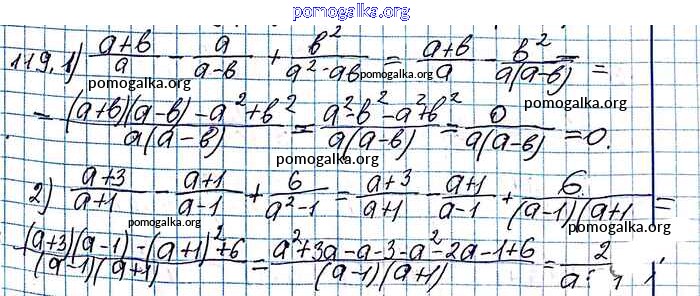 pomogalka.org
119. 1) (a+b)/a - a/(a-b) + b²/(a²-ab) = (a+b)/a - b²/(a(a-b)) =
pomogalka.org pomogalka.org pomogalka.org
= ((a+b)(a-b) - a² + b²)/(a(a-b)) = (a²-b²-a²+b²)/(a(a-b)) = 0/(a(a-b)) = 0.
pomogalka.org
2) (a+3)/(a+1) - (a+1)/(a-1) + 6/(a²-1) = (a+3)/(a+1) - (a+1)/(a-1) + 6/((a-1)(a+1 =
pomogalka.org pomogalka.org
((a+3)(a-1) - (a+1)² + 6)/((a-1)(a+1)) = (a²+3a-a-3-a²-2a-1+6)/((a-1)(a+1)) = 2/a
pomogalka.org